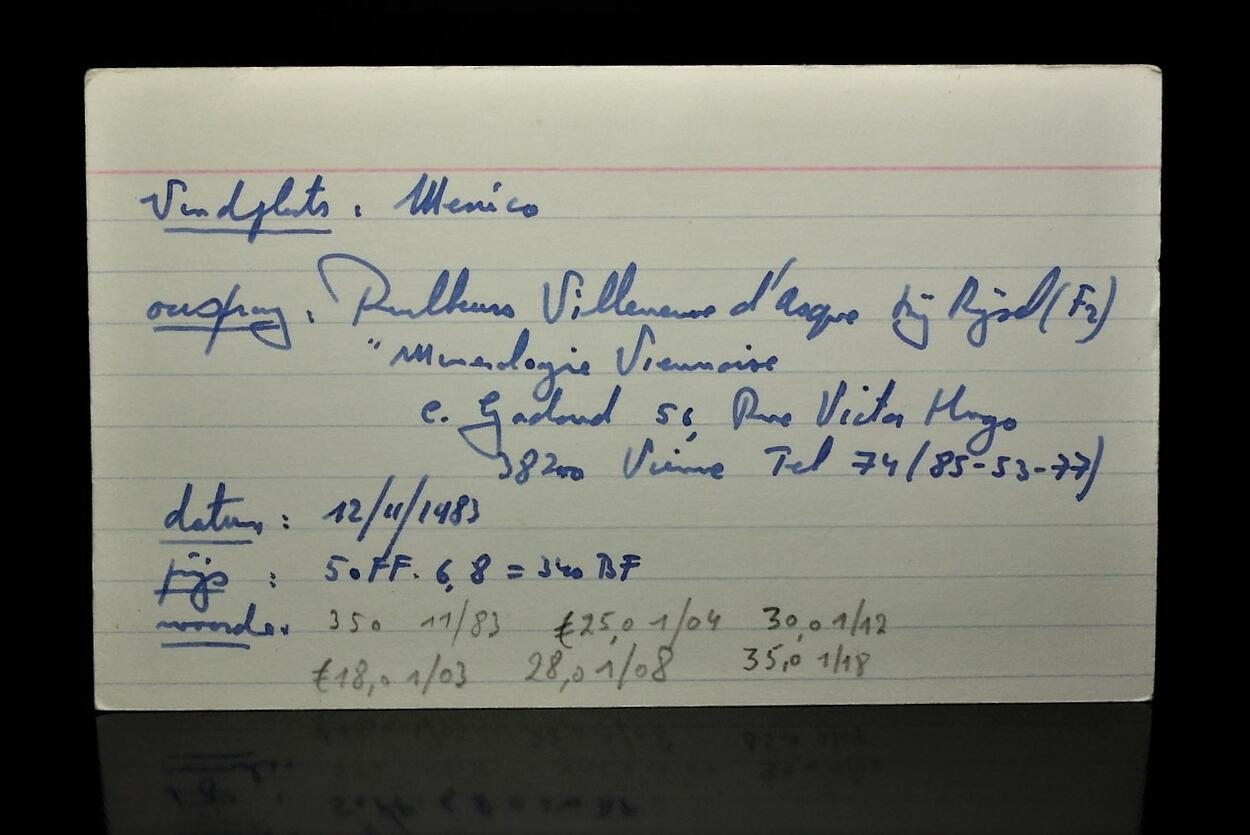 Vindplats : Mexico
oorsprong : Ruilbeurs Villeneuve d'Asque bij Rijsel (Fr)
"Mineralogie Viennoise
C. Gadoud 56, Rue Victor Hugo
38200 Vienne Tel 74 (85-53-77)
datum : 12/11/1983
prijs : 50 FF. 6,8 = 340 BF
waarde : 350 11/83 €25,0 1/04 30,0 1/12
€18,0 1/03 28,0 1/08 35,0 1/18